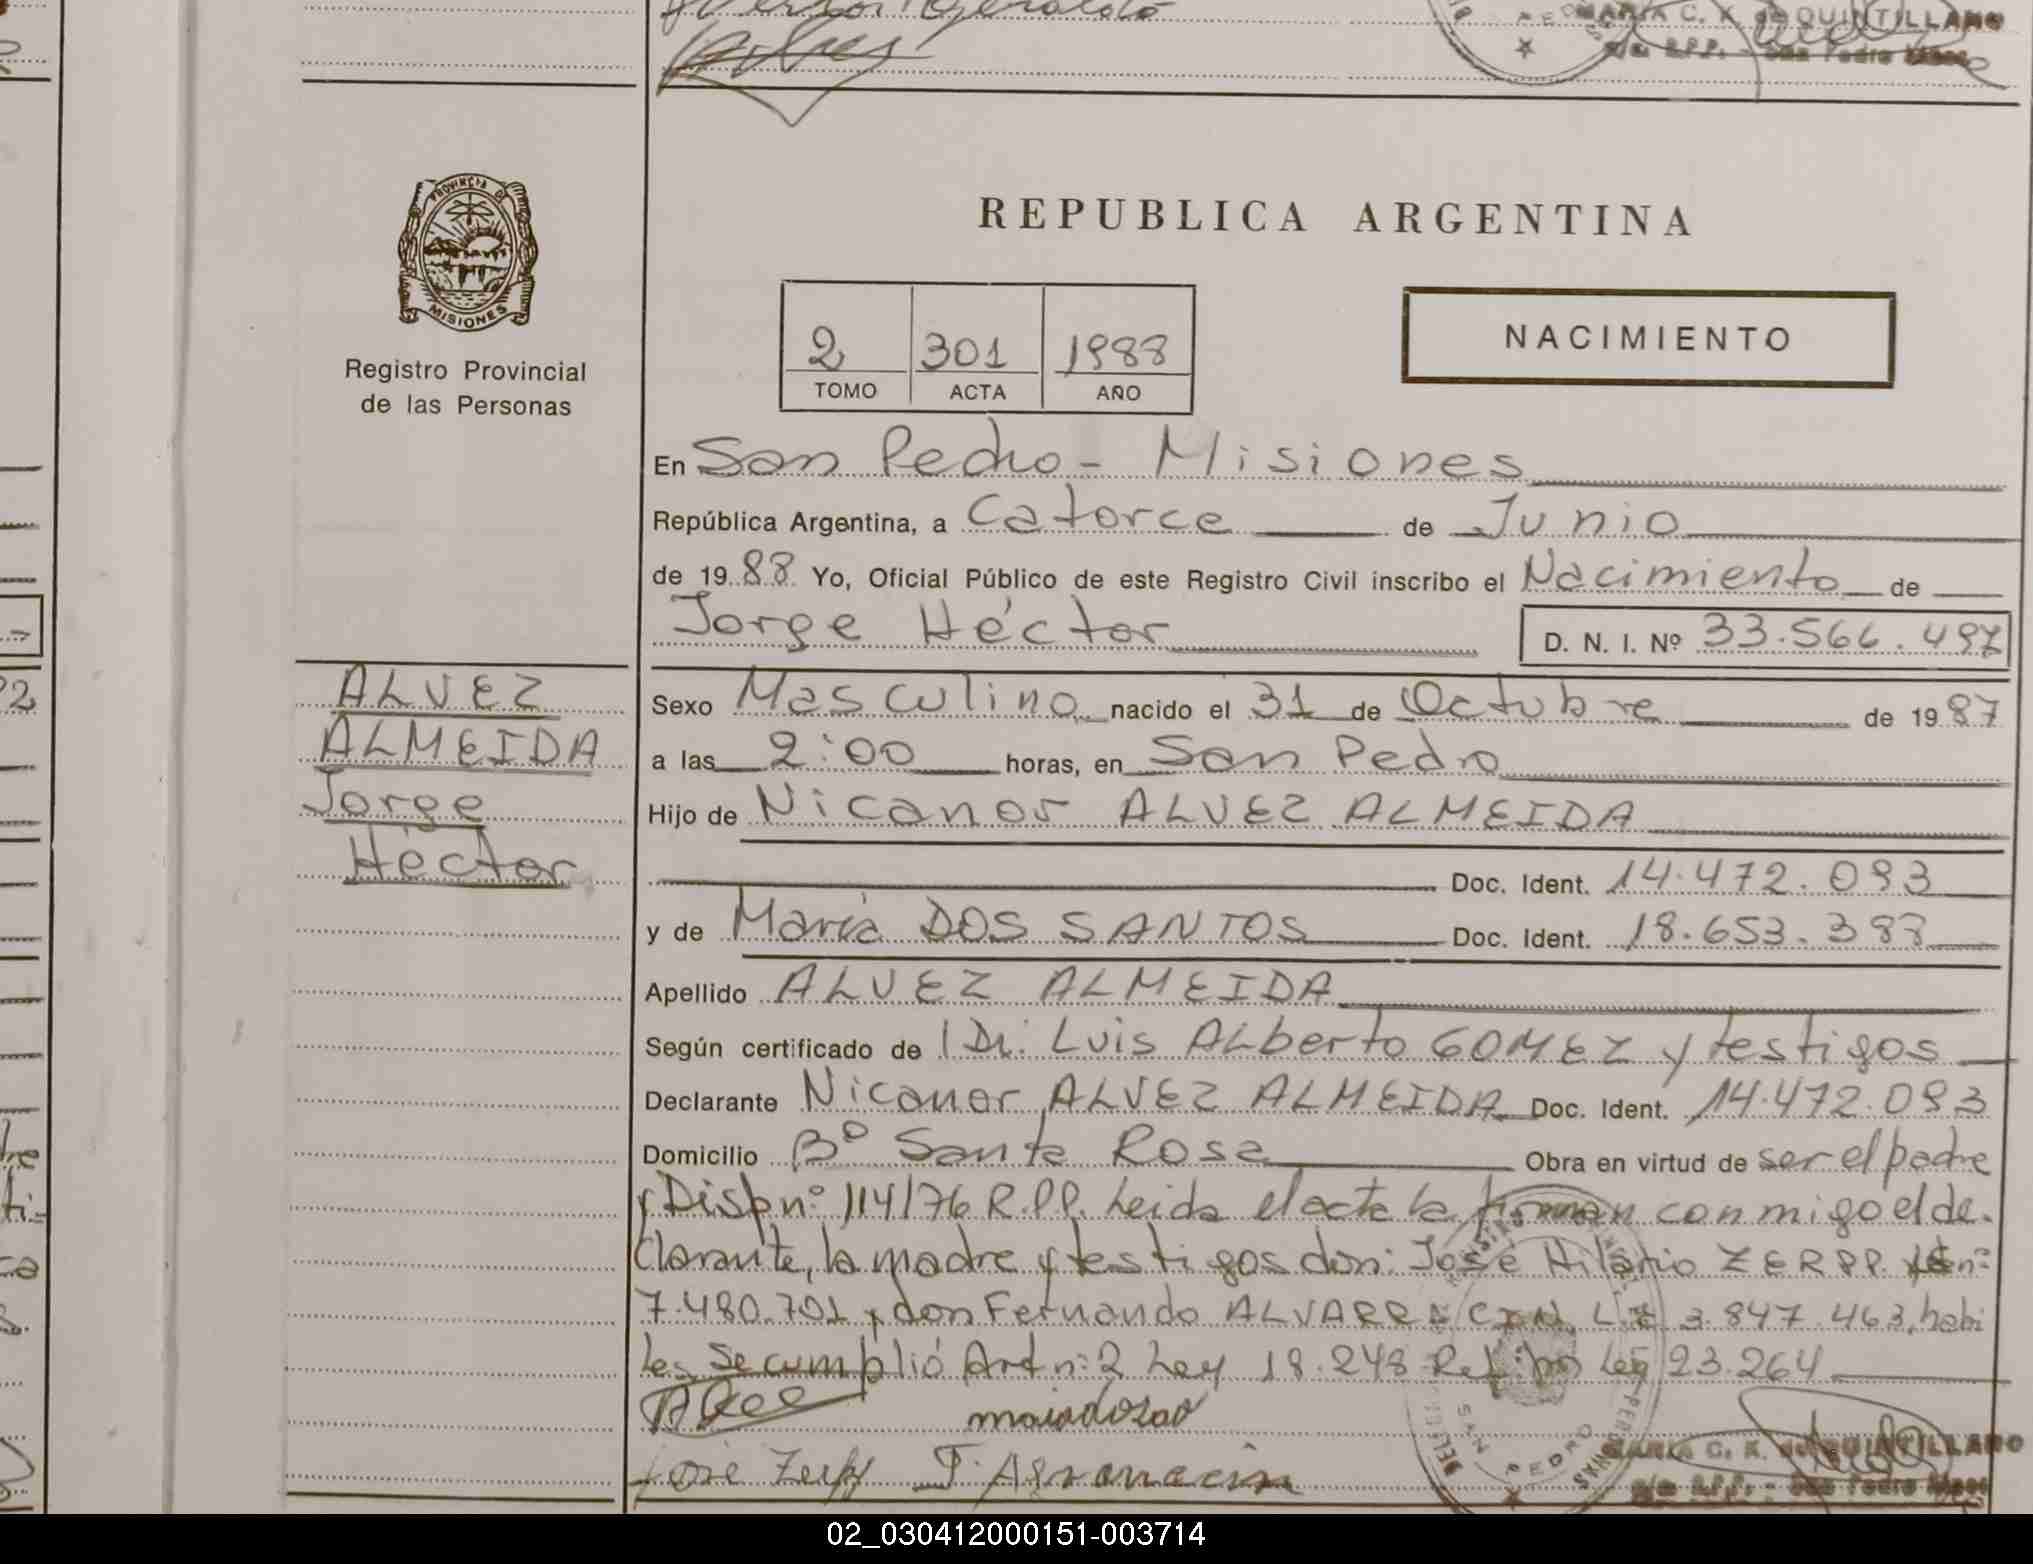 MARIA C. K. de QUINTILLANO
PROVINCIA DE
MISIONES
Registro Provincial
de las Personas
REPUBLICA ARGENTINA
2 301 1988
TOMO ACTA AÑO
NACIMIENTO
En San Pedro - Misiones
República Argentina, a Catorce de Junio
de 19 88 Yo, Oficial Público de este Registro Civil inscribo el Nacimiento de
Jorge Héctor D. N. I. Nº 33.566.497
ALVEZ
ALMEIDA
Jorge
Héctor
Sexo Masculino nacido el 31 de Octubre de 19 87
a las 2:00 horas, en San Pedro
Hijo de Nicanor ALVEZ ALMEIDA
Doc. Ident. 14.472.093
y de María DOS SANTOS Doc. Ident. 18.653.388
Apellido ALVEZ ALMEIDA
Según certificado de Dr: Luis ALberto GOMEZ y testigos
Declarante Nicanor ALVEZ ALMEIDA Doc. Ident. 14.472.093
Domicilio Bº Santa Rosa Obra en virtud de ser el padre
y Disp nº 114/76 R.P.P. Leida el acta la firman conmigo el de-
clarante, la madre y testigos don: José Hilario
7.480.701 y don Fernando 3.847.463, habi
les Se cumplió Art nº 2 Ley 18.248 Ref. por Ley 23.264
SAN PEDRO
MARIA C. K. de QUINTILLANO
02_030412000151-003714